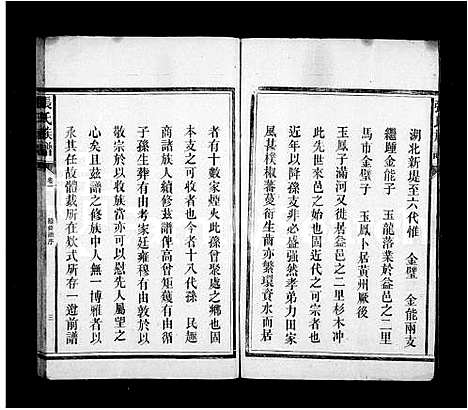 湖北新堤至六代惟　金璧　金能兩支
繼踵金能子　玉龍落業於益邑之二里
馬市金璧子　玉鳳卜居黄州厰後
玉鳳子滿河又徙居益邑二里杉木冲
此先世來邑之始也固近代之可宗者也
年以降孫支非必盛强然孝弟力田家
風甚樸椒蕃蔓衍生齒亦繁環資水而居
者有十數家煙火此孫曾聚處之鄉也固
本支之可收者也今共十八代孫　民
商諸族人續修茲譜俾高曾矩矱有由而
子孫生葬有可考家廷雍穆有由敦於以
敬宗於以收族當亦可以慰先人屬望之
心矣且茲譜之修族中人無一博雅者以
承其任故體裁所在欵式所存一遵前譜
張氏族譜
卷一
三